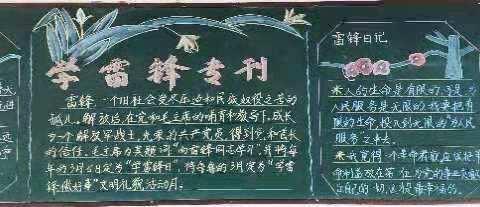 学雷锋专刊
雷锋一个旧社会受尽压迫和民族奴役之苦的
孤儿。解放后,在党和毛主席的哺育和教导下,成长
为一个解放军战士,光荣的共产党员,得到党和首长
的信任。毛主席为其题词“向雷锋同志学习”,并将每
年的3月5日定为“学雷锋日”,将每年的3月定为“学雷
锋做好事”文明礼貌活动月。
雷锋日记
人的生命是有限的,可是为
人民服务是无限的,我要把有
限的生命,投入到无限的为人民
服务之中去。
我觉得一个革命者就应该把革
命利益放在第一位,为党的事业贡献
自己的一切,这才是最幸福的。